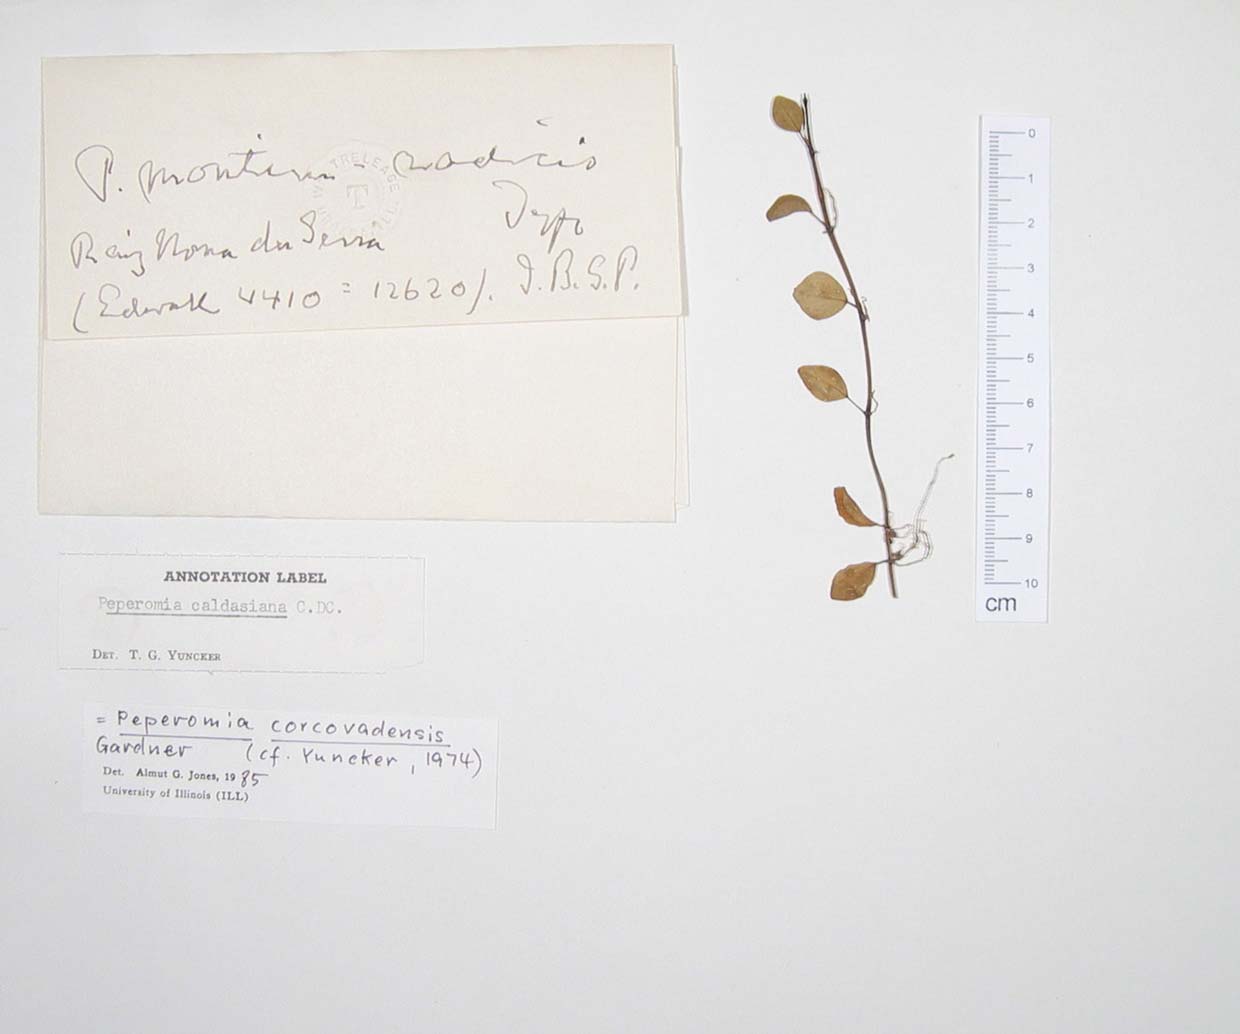 P. montium-radicis
Typo
Raiz Nona da Serra
( 4410 = 12620). I.B.S.P.
TRELEASE
T
ANNOTATION LABEL
Peperomia caldasiana C.DC.
DET. T. G. YUNCKER
= Peperomia corcovadensis
Gardner (cf. Yuncker, 1974)
Det. Almut G. Jones, 1985
University of Illinois (ILL)
0
1
2
3
4
5
6
7
8
9
10
cm